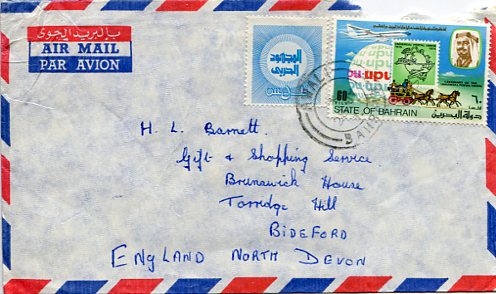 بالبريد الجوي
AIR MAIL
PAR AVION
المجهود
الحربي
upu
60
FILS
٦٠
فلس
STATE OF BAHRAIN
دولة البحرين
H. L. Barnett.
Gift & Shopping Service.
Brunswick House
Torridge Hill
BIDEFORD
ENGLAND NORTH DEVON